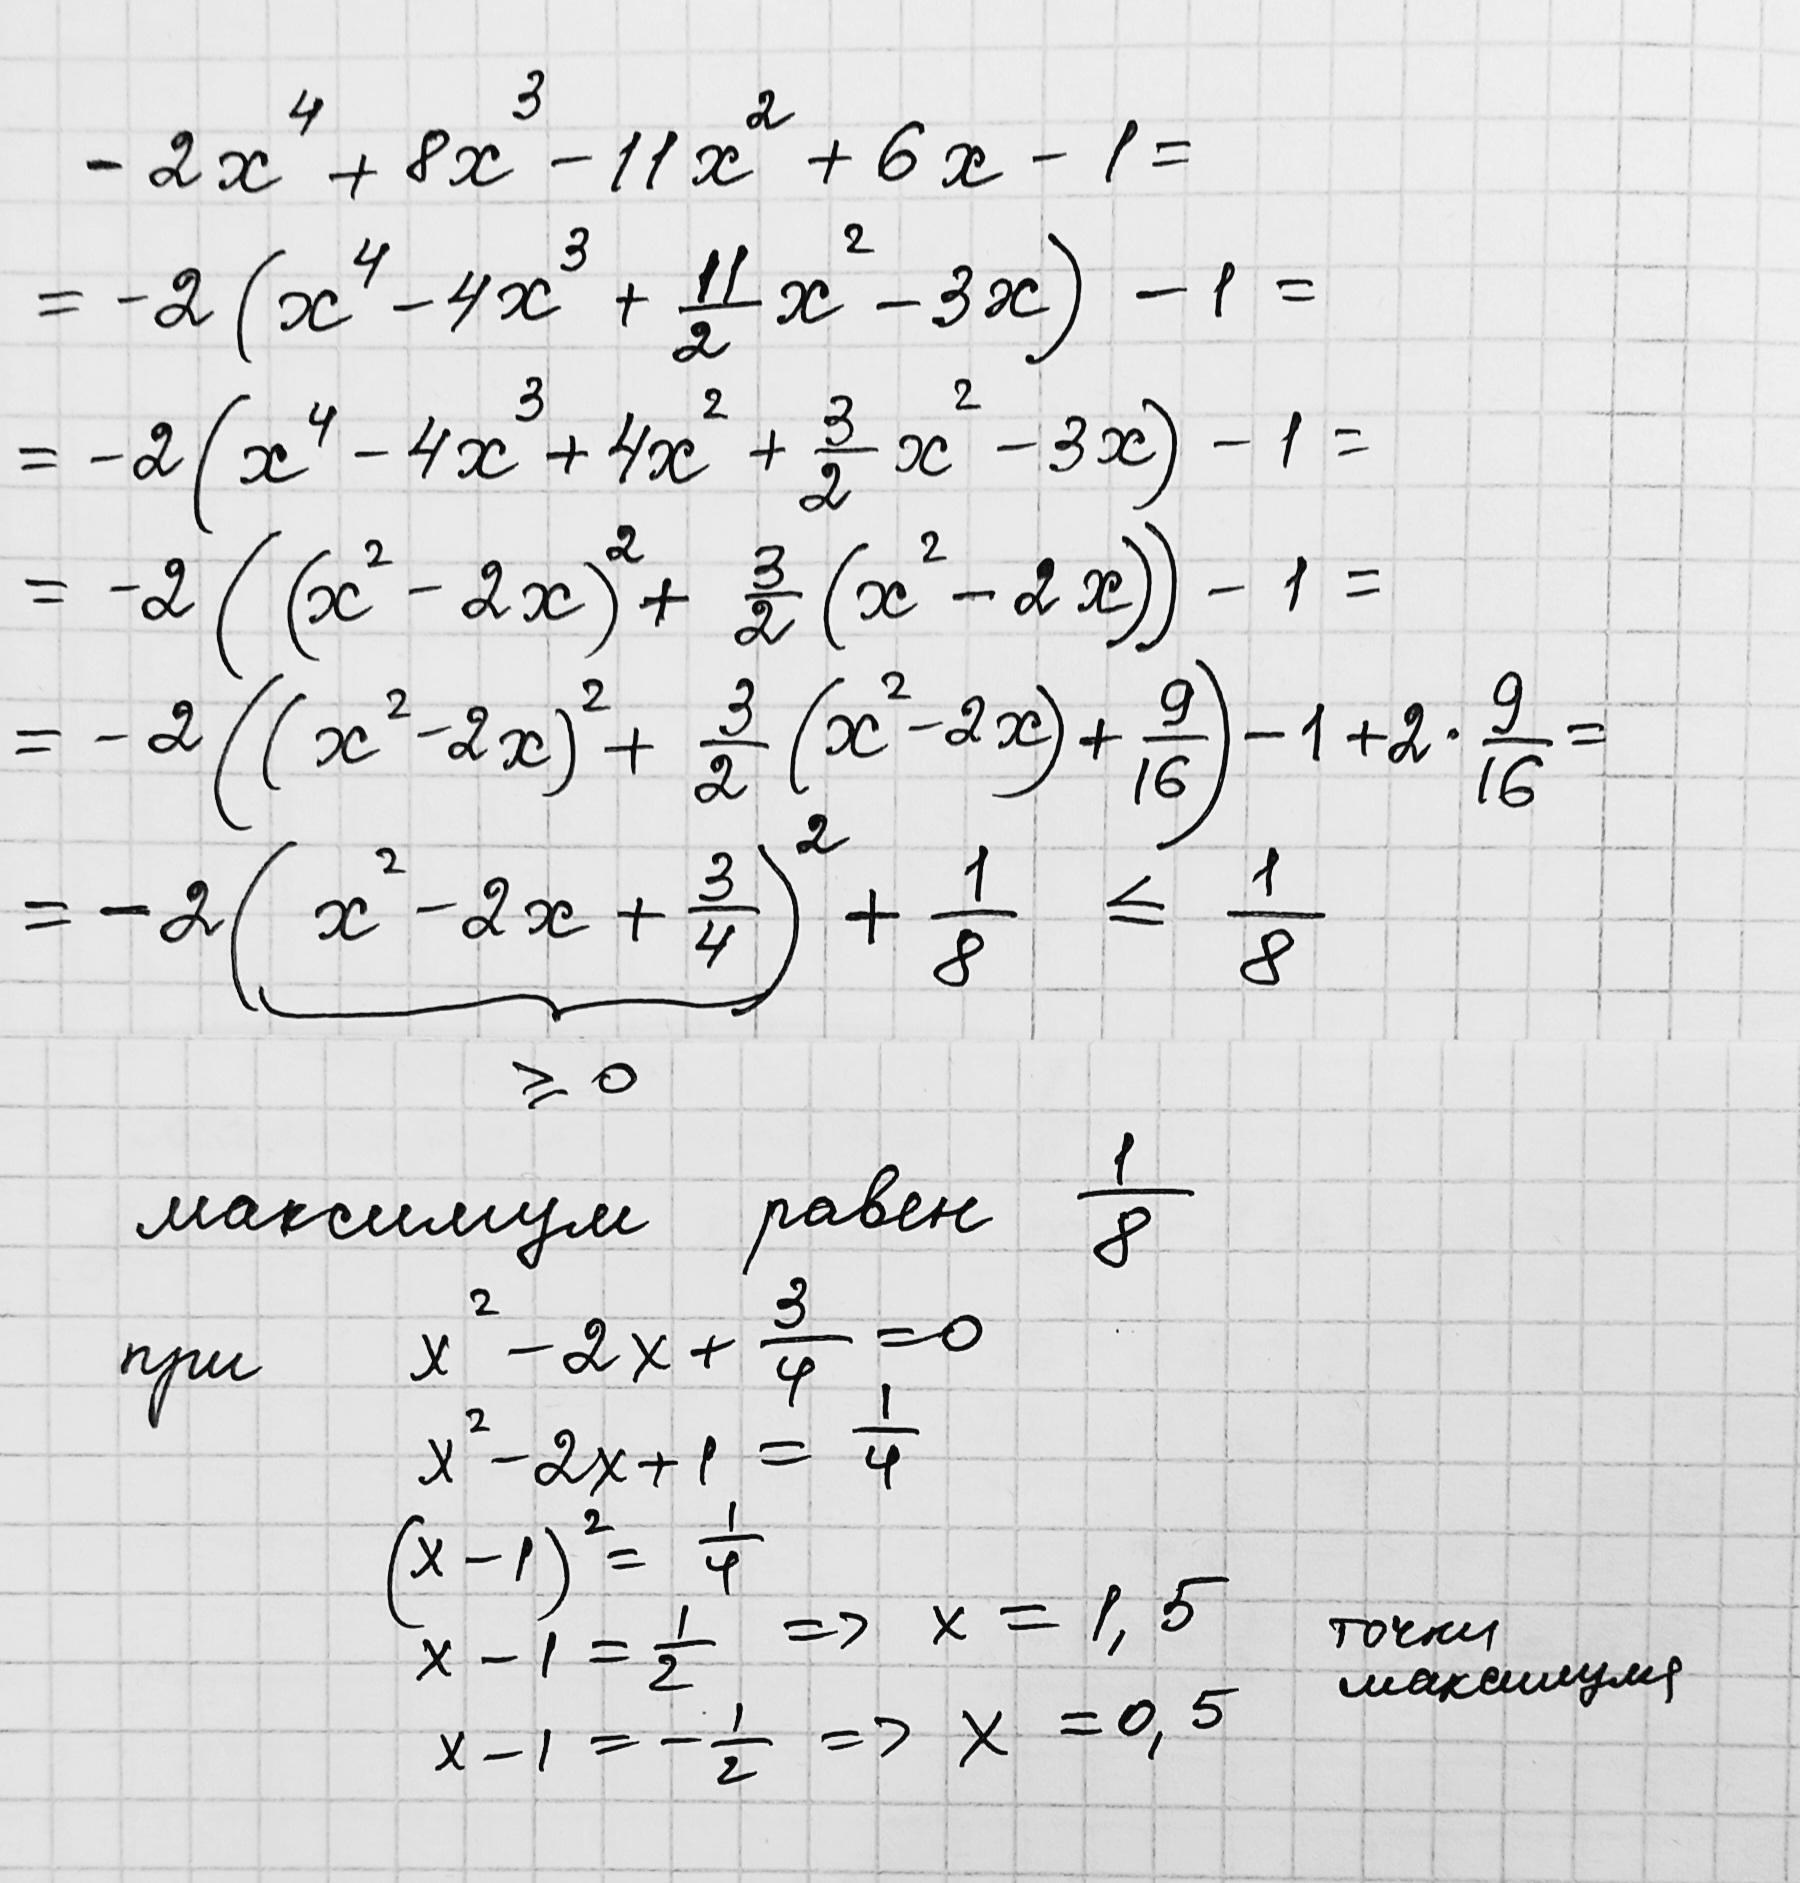 -2x⁴ + 8x³ - 11x² + 6x - 1 =
= -2(x⁴ - 4x³ + 11/2 x² - 3x) - 1 =
= -2(x⁴ - 4x³ + 4x² + 3/2 x² - 3x) - 1 =
= -2((x² - 2x)² + 3/2 (x² - 2x)) - 1 =
= -2((x² - 2x)² + 3/2 (x² - 2x) + 9/16) - 1 + 2 · 9/16 =
= -2(x² - 2x + 3/4)² + 1/8 ≤ 1/8
≥ 0
максимум равен 1/8
при x² - 2x + 3/4 = 0
x² - 2x + 1 = 1/4
(x - 1)² = 1/4
x - 1 = 1/2 => x = 1,5 точки
максимума
x - 1 = -1/2 => x = 0,5